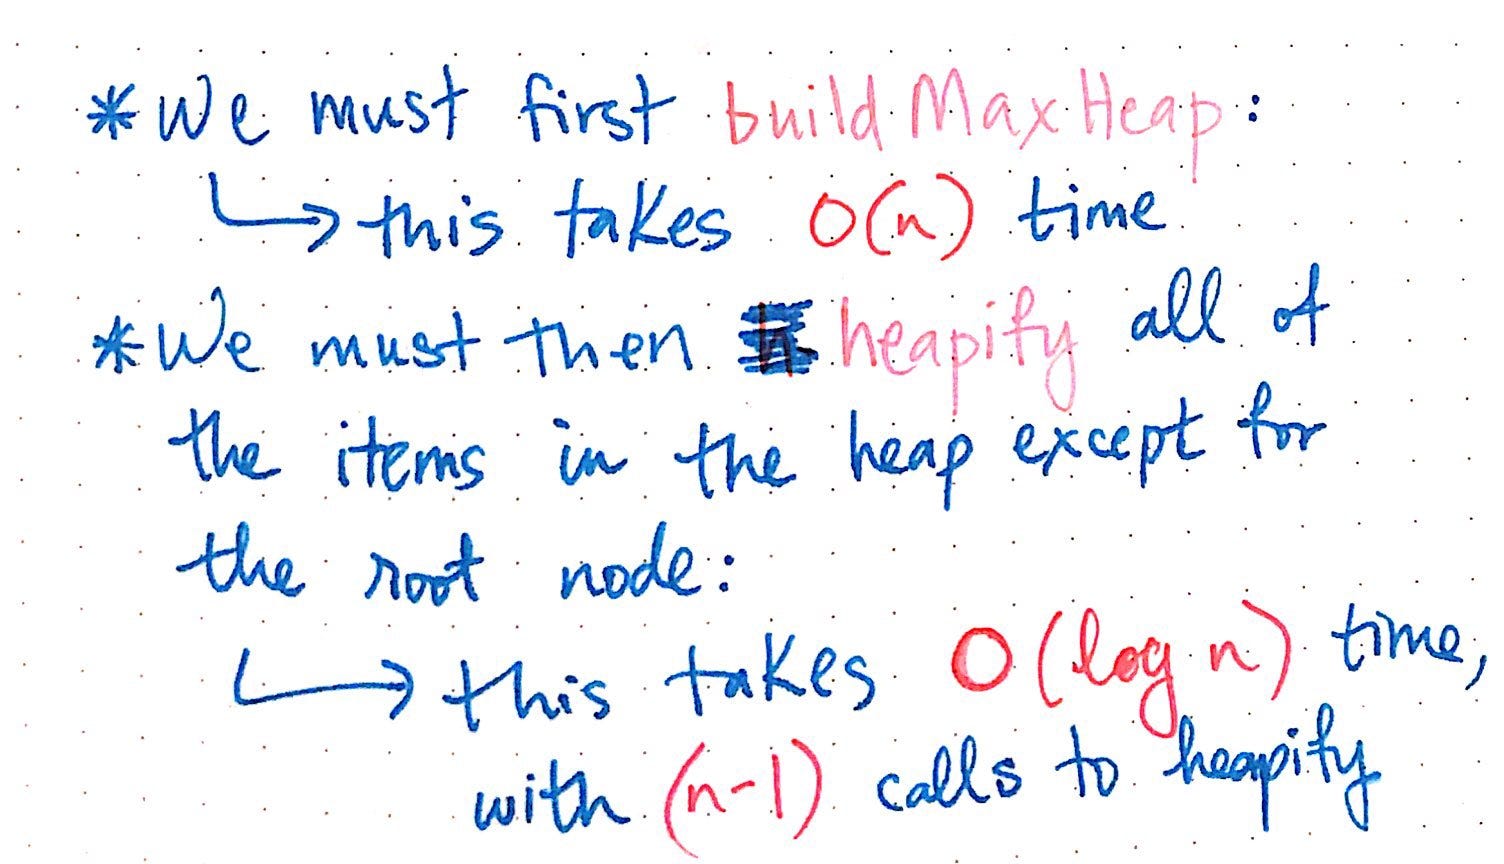 * We must first buildMaxHeap:
↳ this takes O(n) time
* We must then heapify all of
the items in the heap except for
the root node:
↳ this takes O(log n) time,
with (n-1) calls to heapify